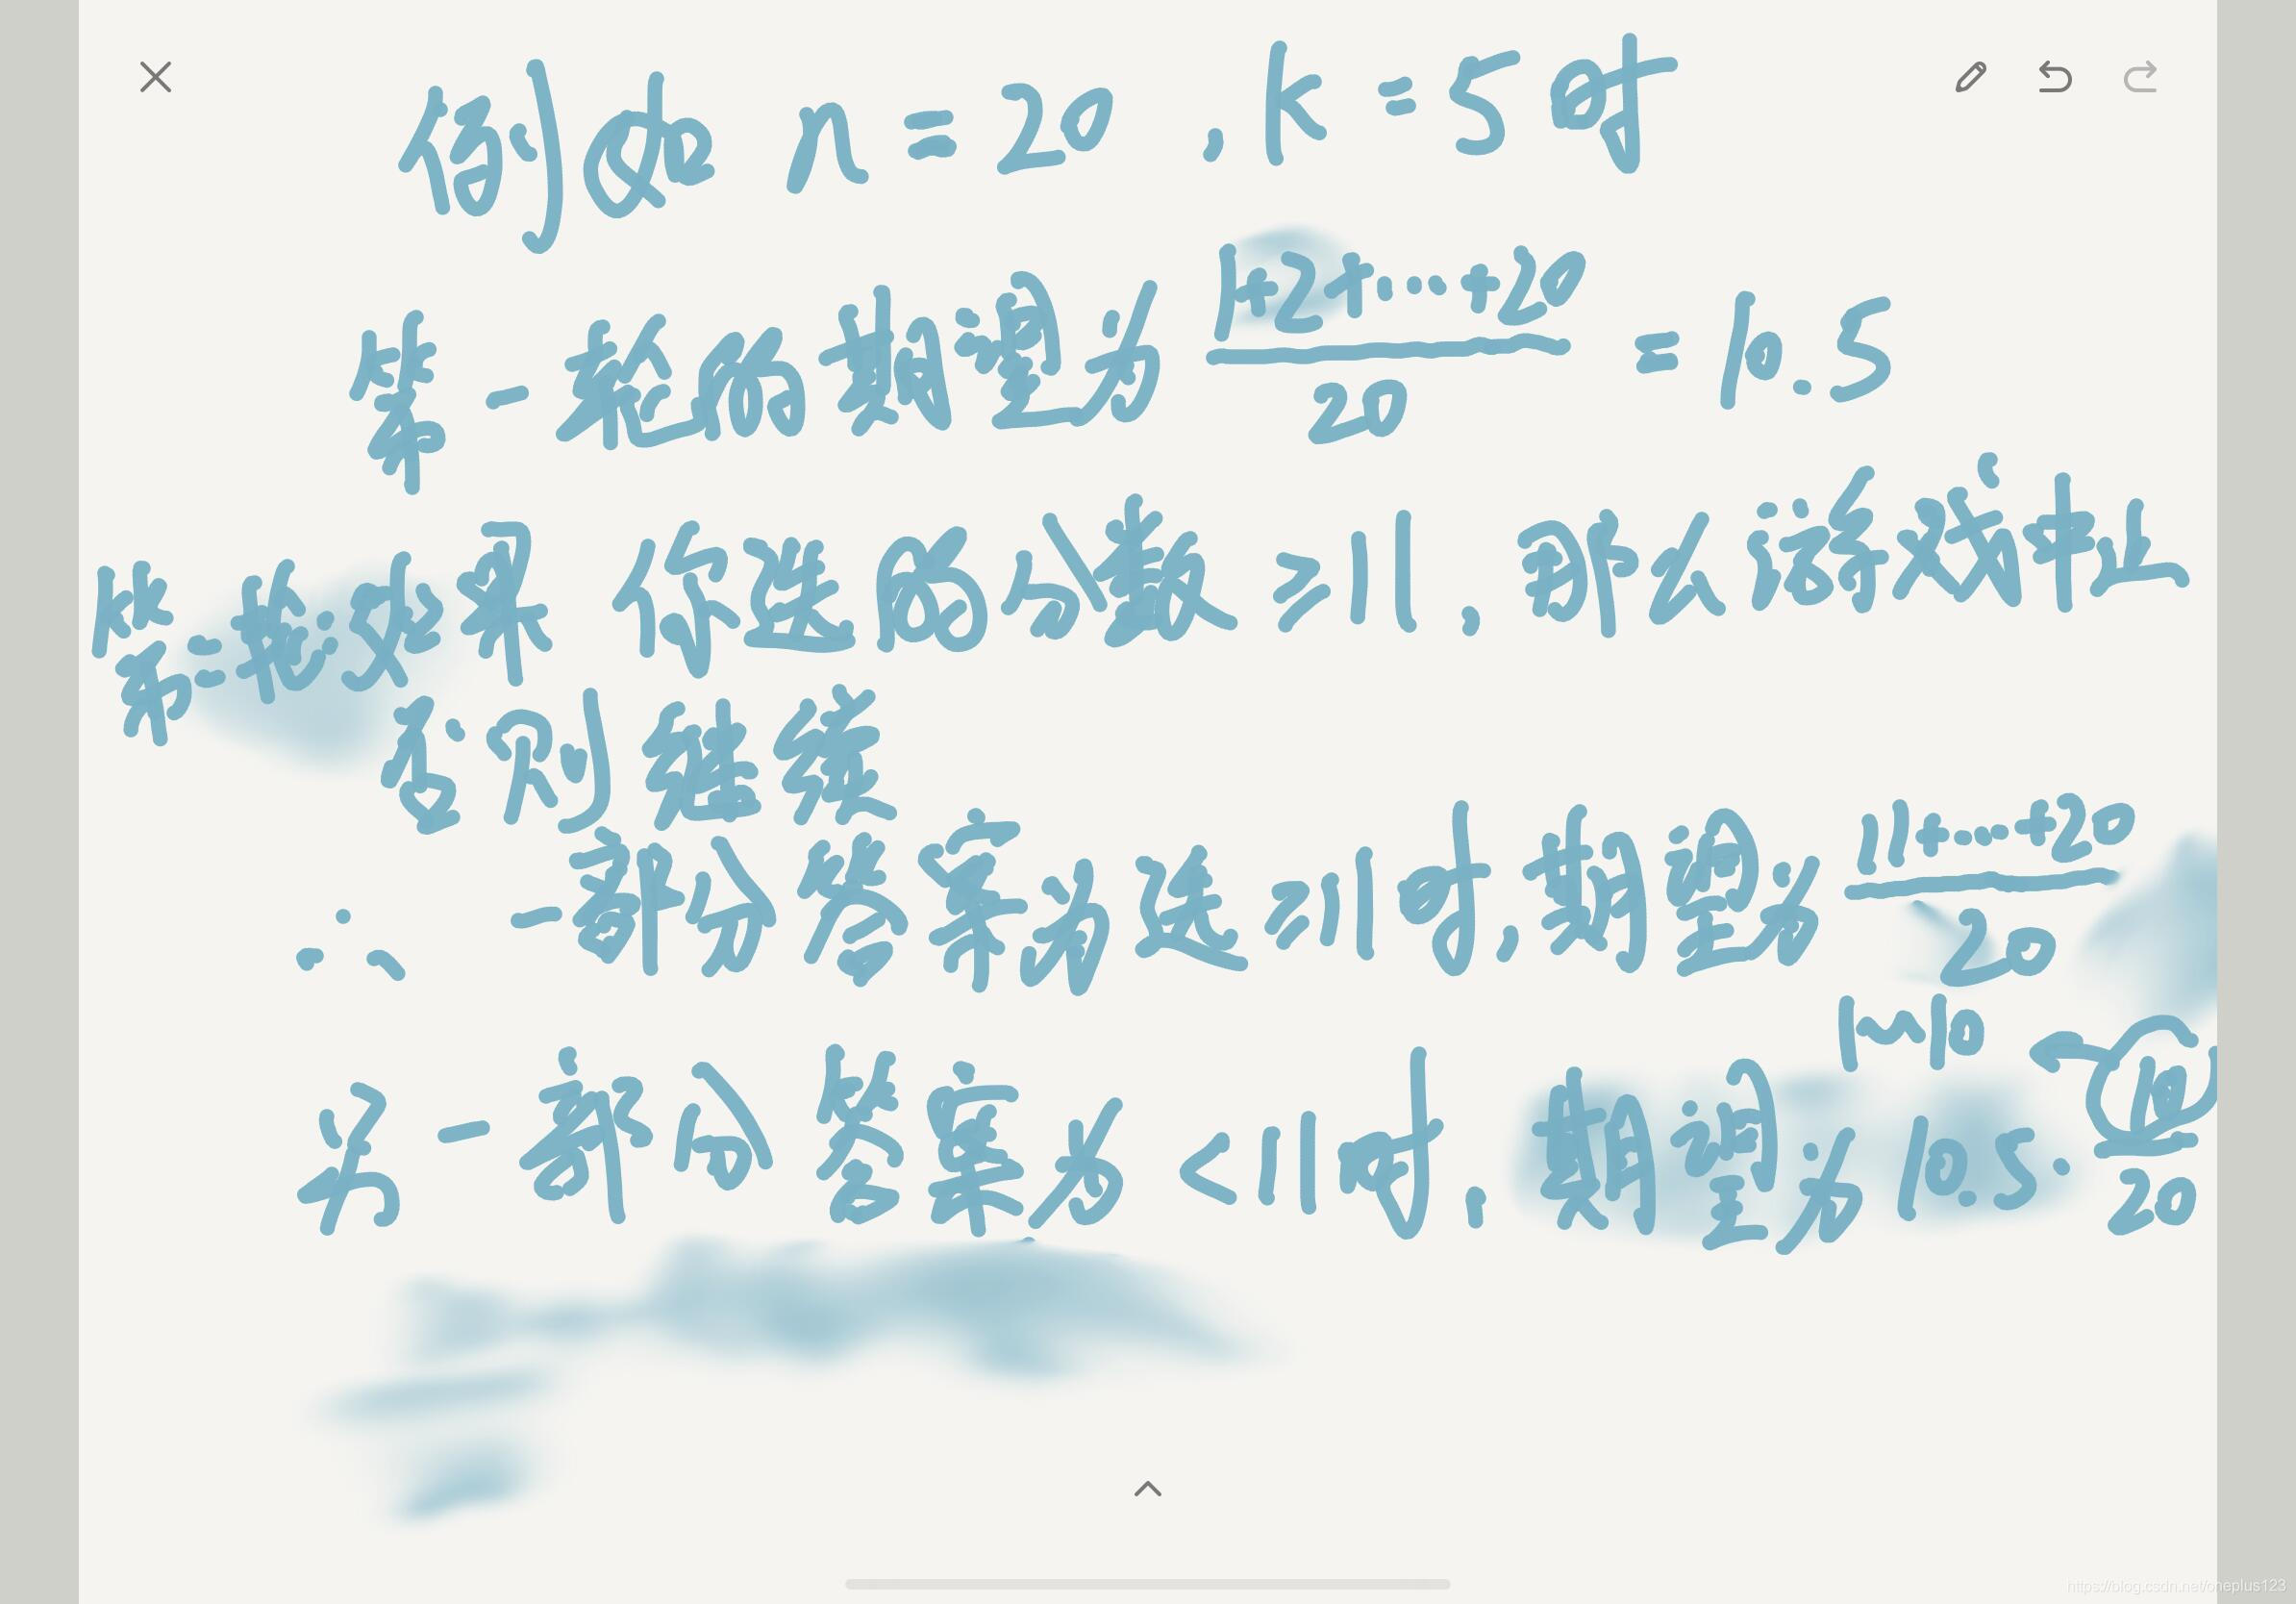 例如 n = 20 , k = 5 时
第一轮的期望为 1+2+……+20 / 20 = 10.5
第二轮:如果 你选的分数 ≥11, 那么游戏中止
否则继续
∴ 一部分答案为选≥11时,期望为 11+……+20 / 20
1~10
另一部分答案为 <11时,期望为 10.5 · 10 / 20
https://blog.csdn.net/oneplus123